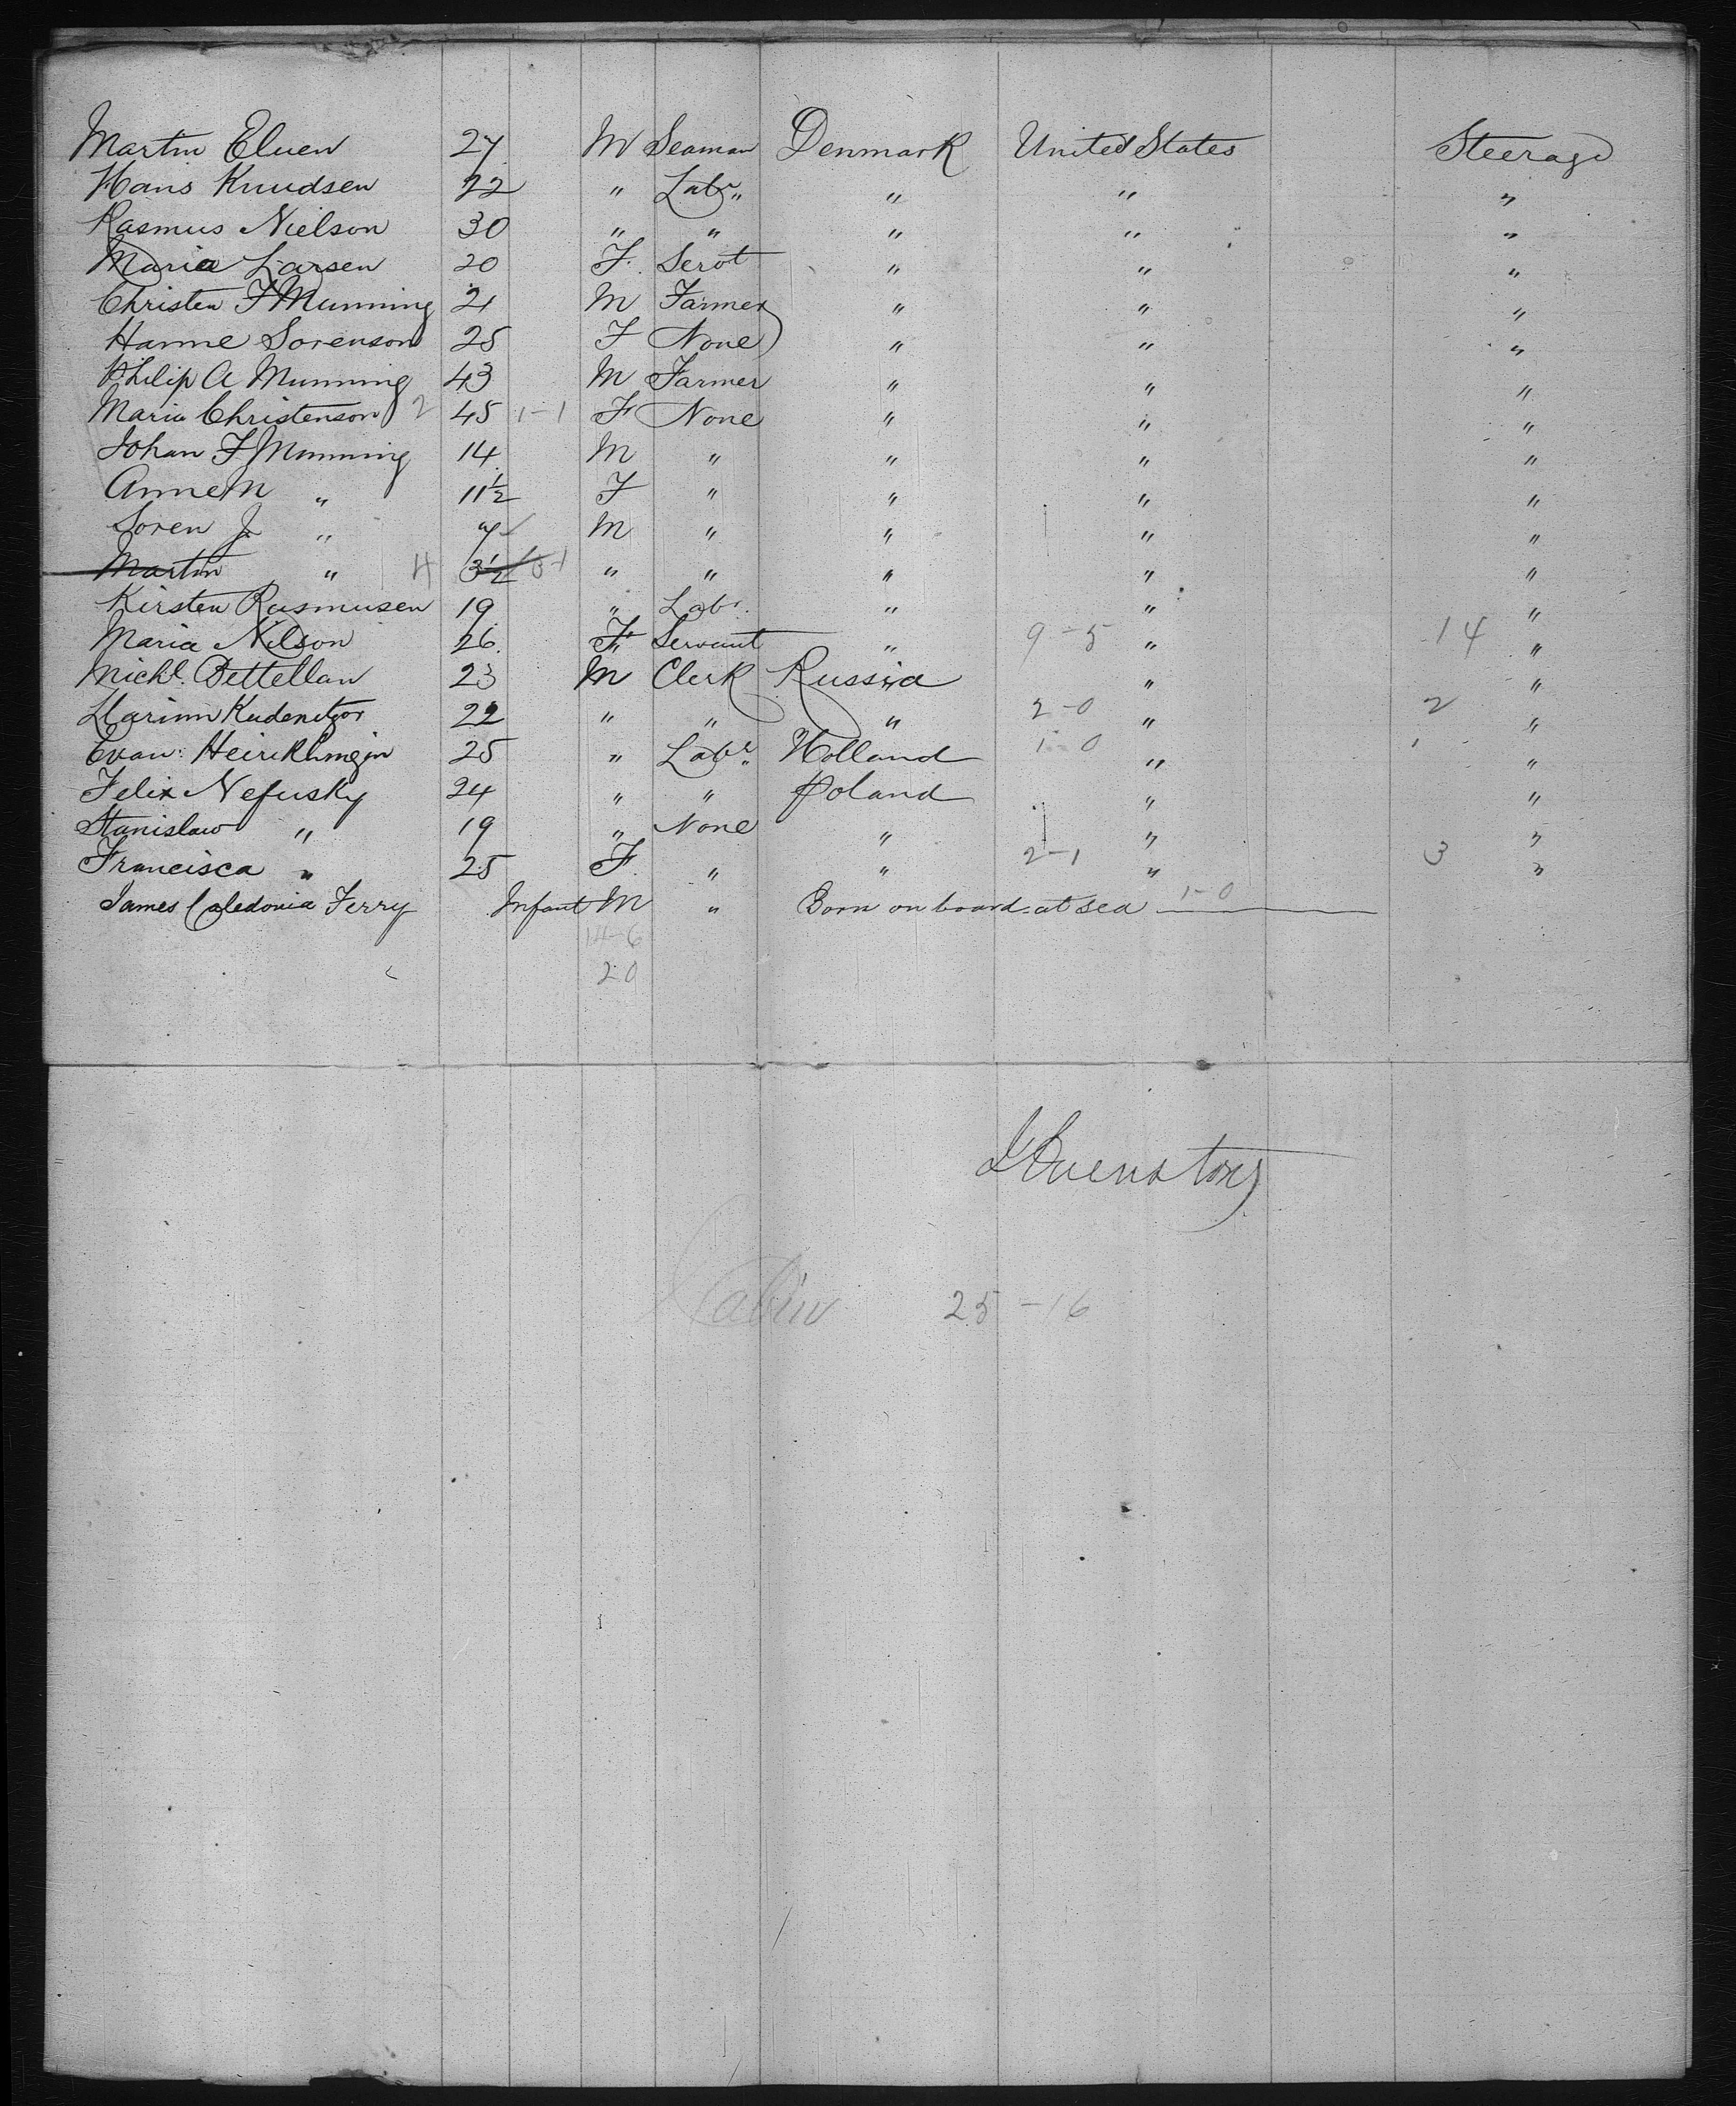 Martin Eluen 27 M Seaman Denmark United States Steerage
Hans Knudsen 22 " Labr " " "
Rasmus Nielson 30 " " " " "
Maria Larsen 20 F. Servt " " "
Christen F Munning 21 M Farmer " " "
Hanne Sorenson 25 F None " " "
Philip A Munning 43 M Farmer " " "
Maria Christenson 2 45 1-1 F None " " "
Johan F Munning 14 M " " " "
Anne M " 11½ F " " " "
Soren J. " 7 M " " " "
Martin " 4 3½ " " " " "
Kirsten Rasmusen 19 " Labr. " " "
Maria Nilson 26 F Servant " 9-5 " 14 "
Michl. Bettellan 23 M Clerk Russia " "
22 " " " 2-0 " 2 "
Evan: 25 " Labr Holland 1-0 " 1 "
Felix Nefusky 24 " " Poland " "
Stanislaw " 19 " None " " "
Francisca " 25 F. " " 2-1 " 3 "
James Caledonia Ferry Infant M " Born on board at sea 1-0
14-6
20
Cabin 25-16